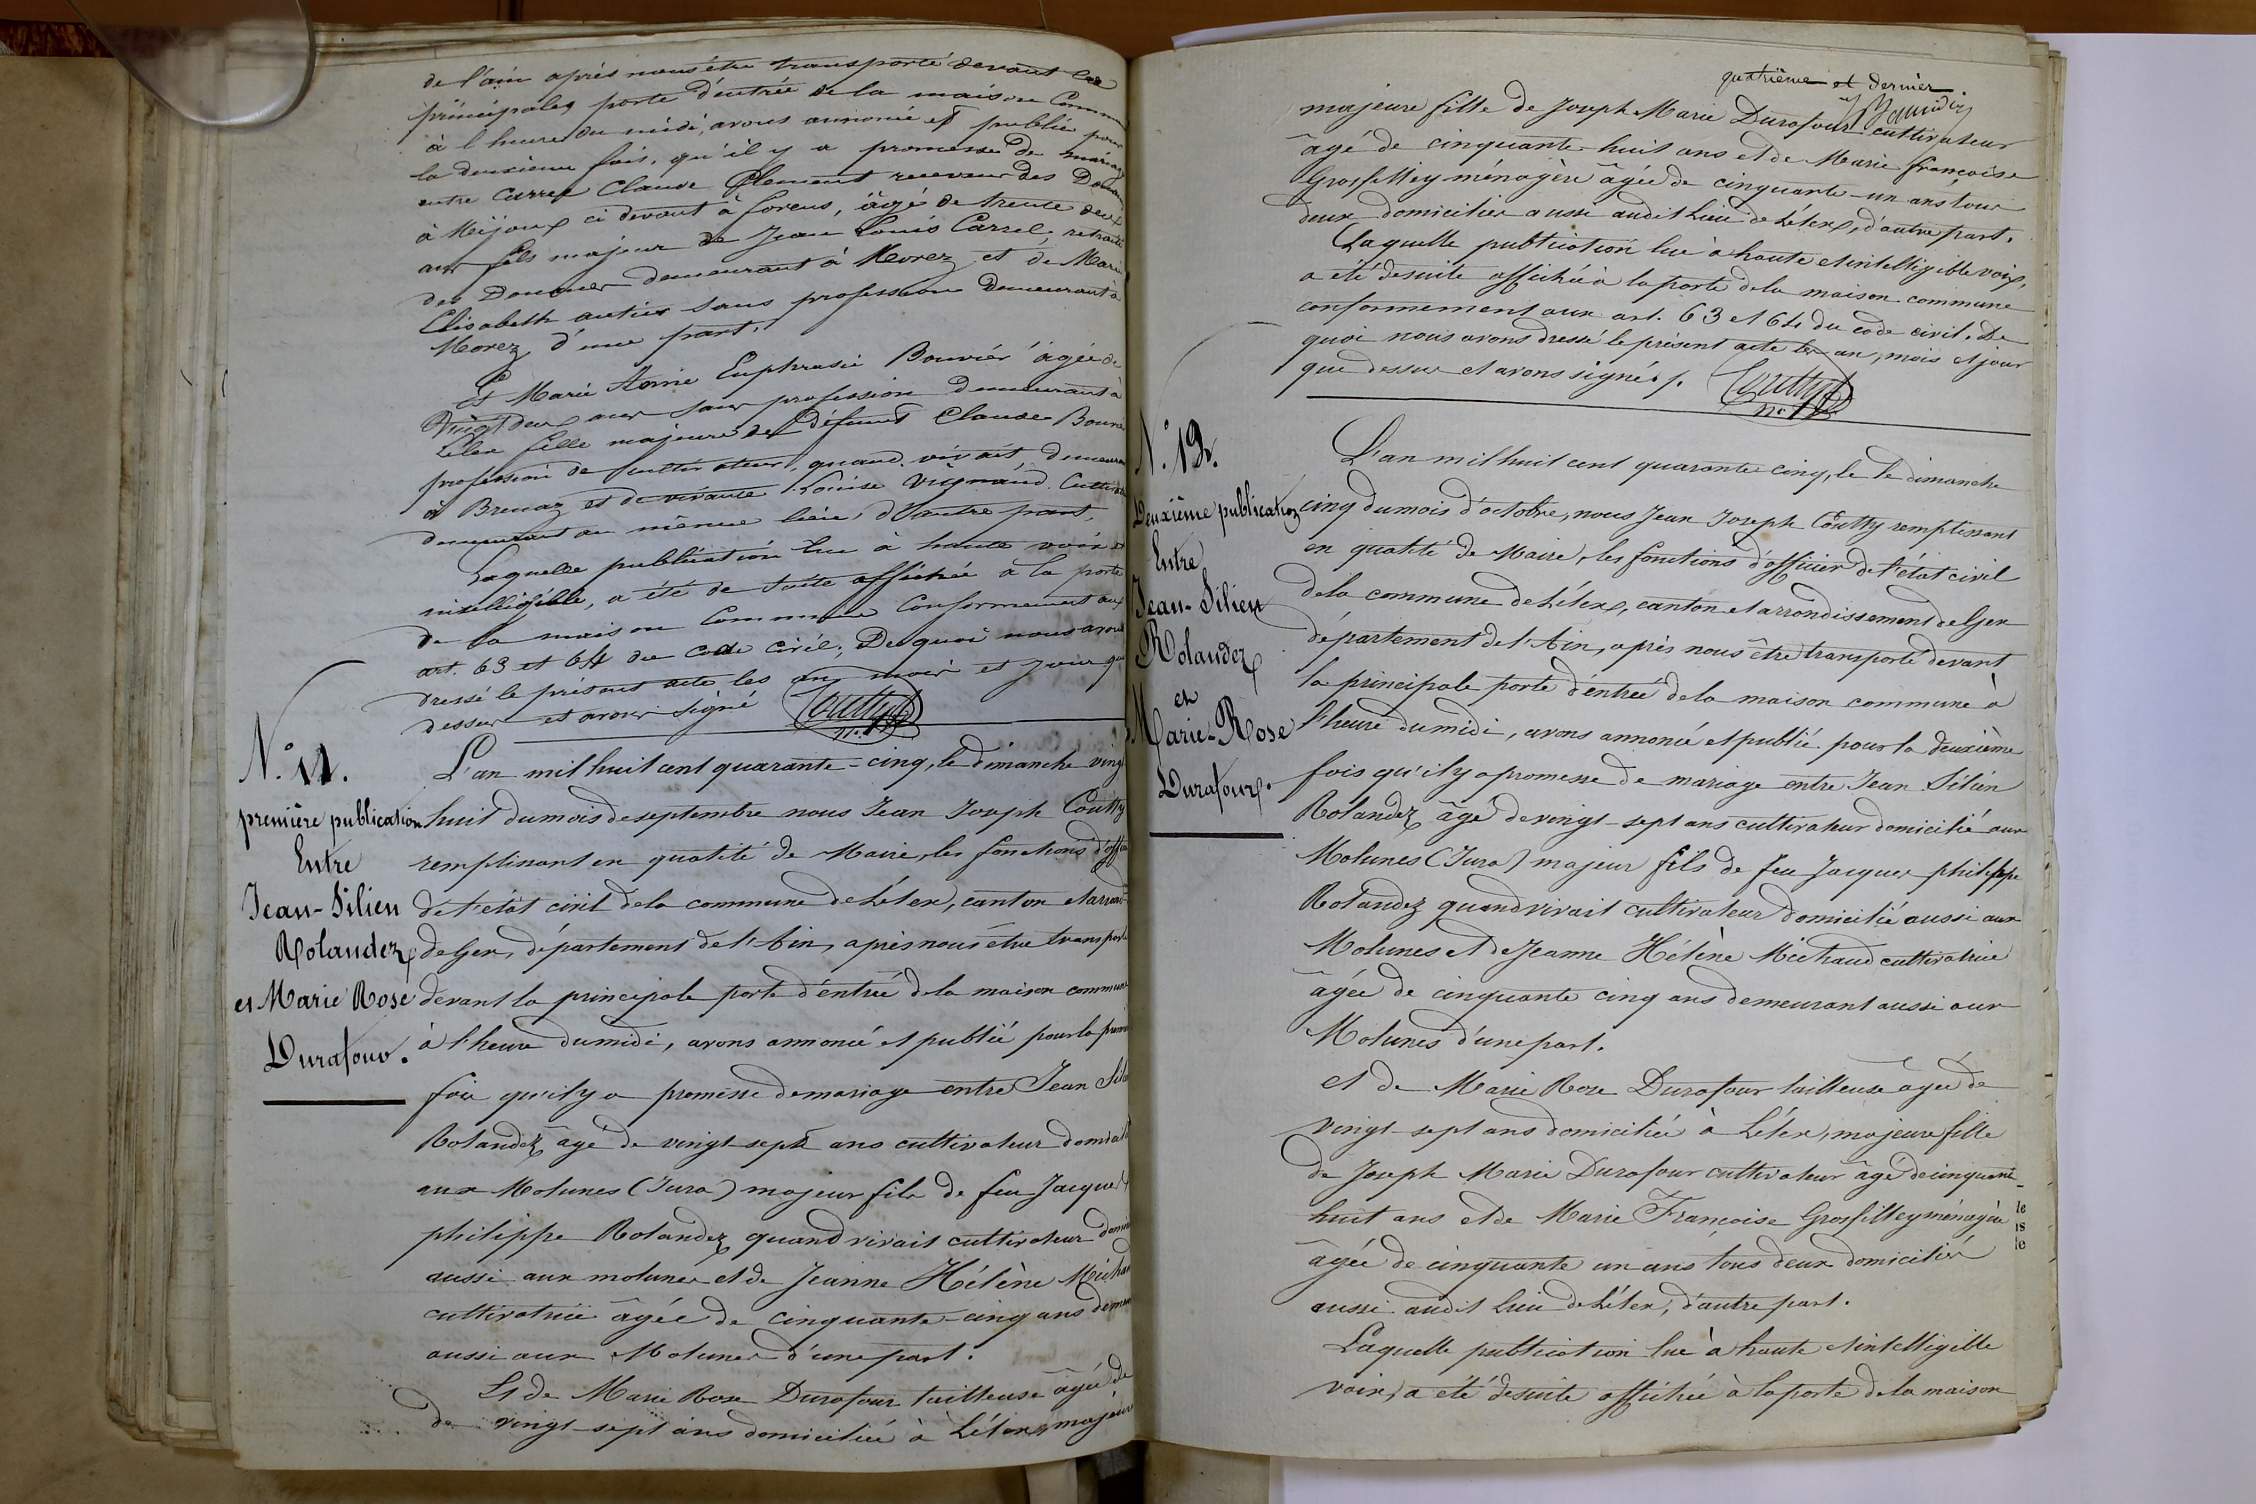 de l'ain après nous être transporté devant la
principales porte d'entrée de la maison Commu
à l'heure du midi, avons annoncé et publié pour
la deuxieme fois, qu'il y a promesse de mariage
entre Carrel Claude Clement receveur des Douan
à Mijoux ci devant à forens, âgé de trente deux
ans fils majeur de Jean Louis Carrel, retraité
des Douanes demeurant à Morez et de Marie
Elisabeth autier sans profession Demeurant à
Morez, d'une part.
Et Marie Annie Euphrasie Bouvier âgée de
Vingt deux ans sans profession Demeurant à
Lélex fille majeure de défunt Claude Bouvie
profession de cultivateur, quand vivait, demeuran
à Brenaz et de vivante Louise Vuignaud Cultivat
demeurant au même lieu, d'autre part,
Laquelle publication lue à haute voix et
intelligible, a été de suite affichée à la porte
de la maison Commune Conformement aux
art. 63 et 64 du code civil, De quoi nous avons
dressé le présent acte les an, mois et jour que
dessus et avons signé Coutty
N.° 11.
première publication
Entre
Jean-Silien
Rolandez
et Marie Rose
Durafour.
L'an mil huit cent quarante-cinq, le dimanche vingt
huit du mois de septembre nous Jean Joseph Coutty
remplissant en qualité de Maire, les fonctions d'offici
de l'état civil de la commune de Lélex, canton et arrond
de Gex, département de l'Ain, après nous être transporté
devant la principale porte d'entrée de la maison commune
à l'heure du midi, avons annoncé et publié pour la premi
fois qu'il y a promesse de mariage entre Jean Sili
Rolandez âgé de vingt-sept ans cultivateur domicili
aux Molunes (Jura) majeur fils de feu Jacques
philippe Rolandez quand vivait cultivateur domici
aussi aux molunes et de Jeanne Hélène Michau
cultivatrice âgée de cinquante-cinq ans demeu
aussi aux Molunes d'une part.
Et de Marie Rose Durafour tailleuse âgée de
de vingt-sept ans domiciliée à Lélex, majeure
quatrième et dernier.
majeure fille de Joseph Marie Durafour cultivateur
âgé de cinquante-huit ans et de Marie françoise
Grosfilley ménagère âgée de cinquante-un ans tous
deux domiciliés aussi audit lieu de Lélex, d'autre part.
Laquelle publication lue à haute et intelligible voix,
a été de suite affichée à la porte de la maison commune
conformement aux art. 63 et 64 du code civil. De
quoi nous avons dressé le présent acte les an, mois et jour
que dessus et avons signé. Coutty
N.° 12.
Deuxième publication
Entre
Jean-Silien
Rolandez
et
Marie-Rose
Durafour.
L'an mil huit cent quarante cinq, le le dimanche
cinq du mois d'octobre, nous Jean Joseph Coutty remplissant
en qualité de Maire, les fonctions d'officier de l'état civil
de la commune de Lélex, canton et arrondissement de Gex
département de l'Ain, après nous être transporté devant
la principale porte d'entrée de la maison commune à
l'heure du midi, avons annoncé et publié pour la deuxième
fois qu'il y a promesse de mariage entre Jean Silien
Rolandez âgé de vingt-sept ans cultivateur domicilié aux
Molunes (Jura) majeur fils de feu Jacques philippe
Rolandez quand vivait cultivateur domicilié aussi aux
Molunes et de Jeanne Hélène Michaud cultivatrice
âgée de cinquante cinq ans demeurant aussi aux
Molunes d'une part.
et de Marie Rose Durafour tailleuse âgée de
vingt-sept ans domiciliée à Lélex, majeure fille
de Joseph Marie Durafour cultivateur âgé de cinquante-
huit ans et de Marie Françoise Grosfilley ménagère
âgée de cinquante un ans tous deux domiciliés
aussi audit lieu de Lélex, d'autre part.
Laquelle publication lue à haute et intelligible
voix, a été de suite affichée à la porte de la maison